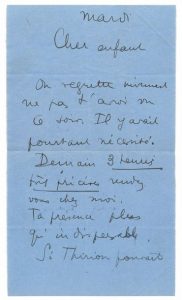 mardi
Cher enfant
On regrette vivement
ne pas t'avoir vu
ce soir. Il y avait
pourtant nécessité.
Demain 3 heures
très précises rendez
vous chez moi.
Ta présence plus
qu'indispensable.
Si Thirion pouvait